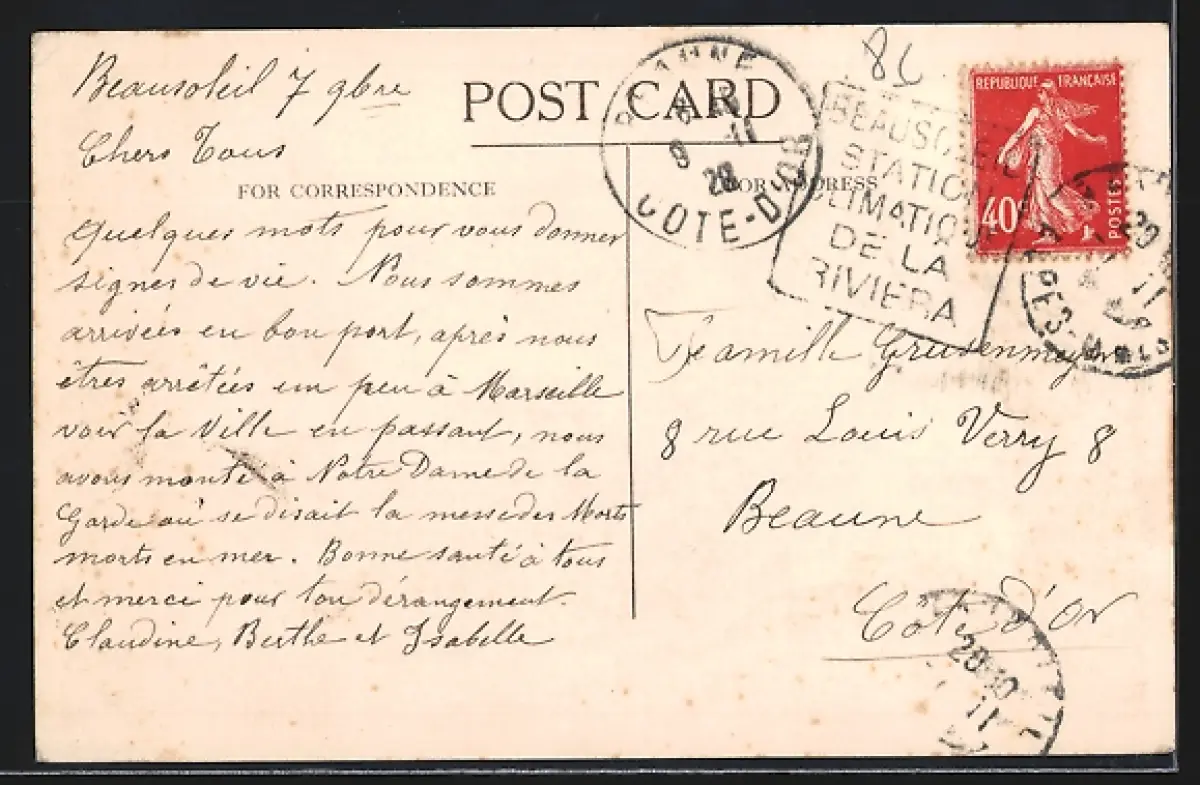 Beausoleil 7 9bre
Chers Tous
POST CARD
FOR CORRESPONDENCE
FOR ADDRESS
Quelques mots pour vous donner
signes de vie. Nous sommes
arrivées en bon port, après nous
êtres arrêtées un peu à Marseille
voir la Ville en passant, nous
avons monté à Notre Dame de la
Garde où se disait la messe des Morts
morts en mer. Bonne santé à tous
et merci pour ton dérangement.
Claudine, Berthe et Isabelle
86
REPUBLIQUE FRANÇAISE
40c
POSTES
BEAUNE
9 - 11
28
COTE-D'OR
BEAUSOLEIL
STATION
CLIMATIQUE
DE LA
RIVIERA
11
ALPES-MMES
Famille
8 rue Louis Verry 8
Beaune
Côte d'Or
20
11